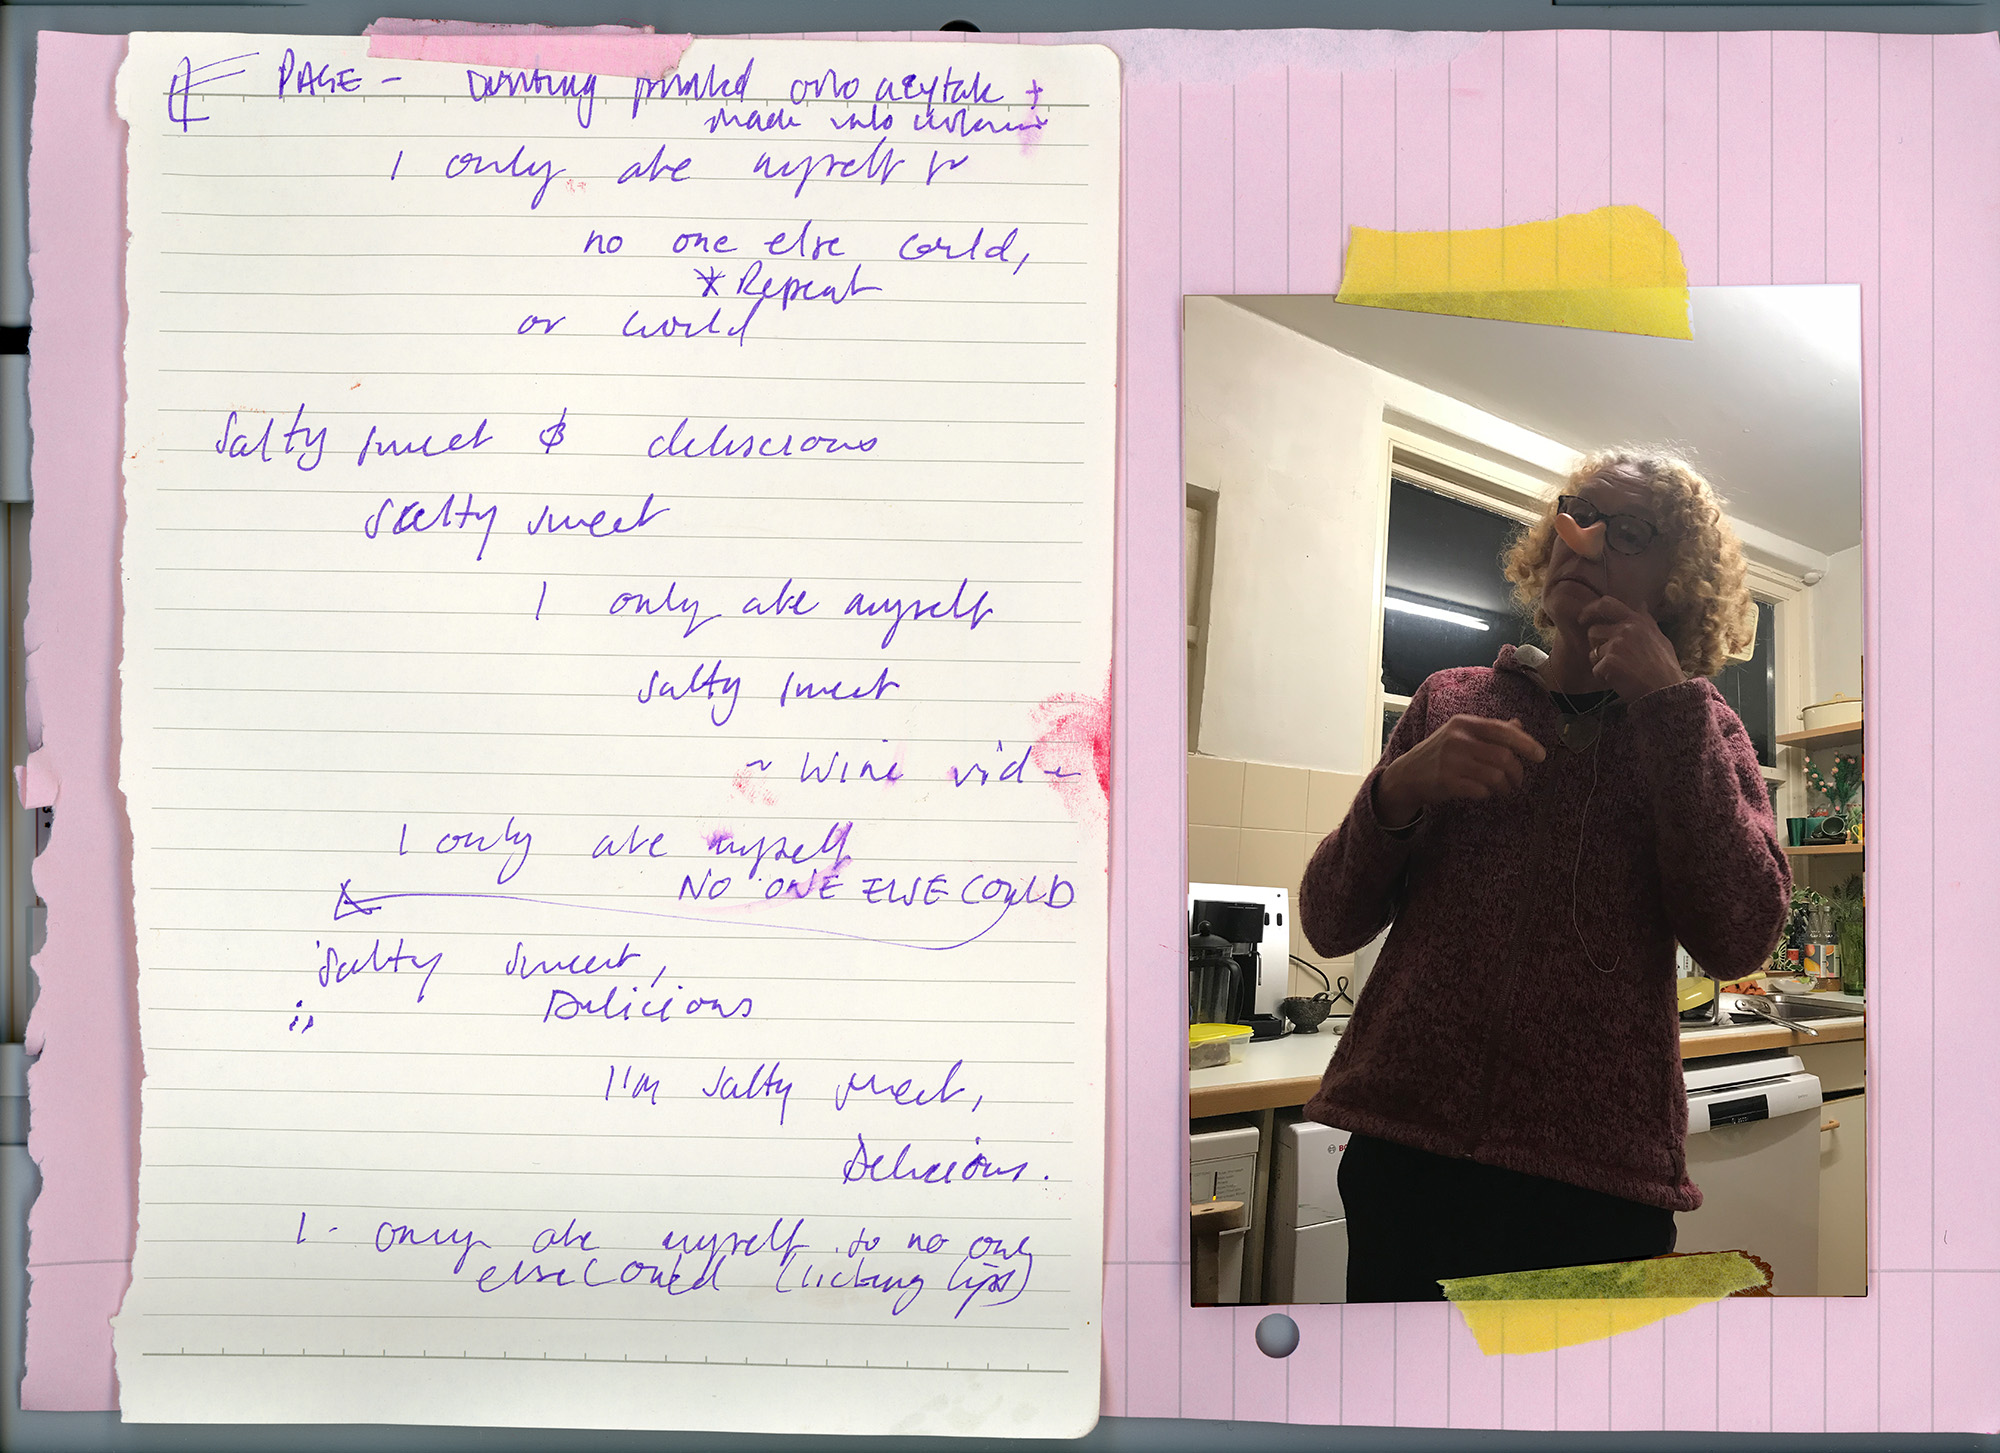 PAGE - writing printed onto acytate +
made into
I only ate myself
no one else could,
* Repeat
or would
Salty sweet & deliscious
Salty sweet
I only ate myself
salty sweet
~ Wine vid ~
I only ate myself
NO ONE ELSE COULD
Salty sweet,
Delicious
I'm salty sweet,
Delicious.
I - only ate myself so no one
else could (licking lips)